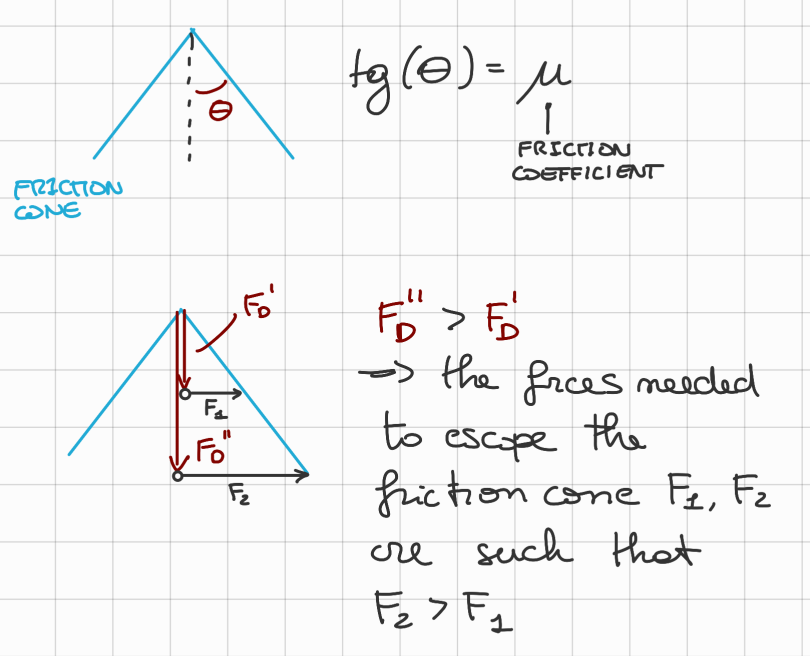 tg(θ) = μ
θ
FRICTION
COEFFICIENT
FRICTION
CONE
F_D'
F_D'' > F_D'
→ the frces needed
F_1
to escape the
F_D''
F_2
friction cone F_1, F_2
are such that
F_2 > F_1